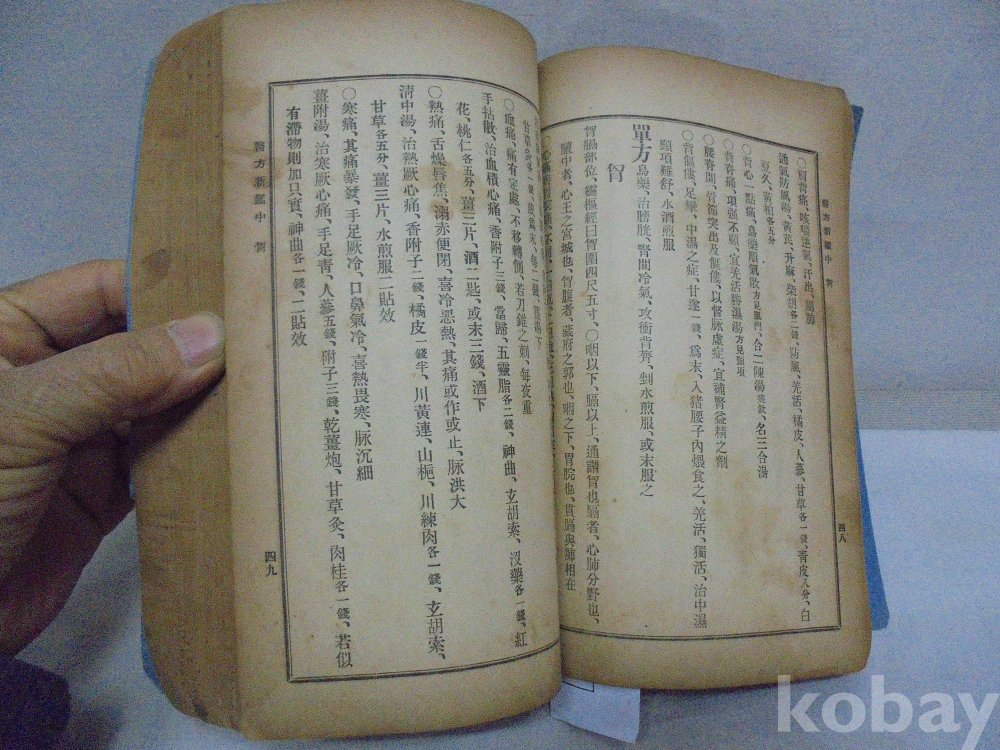 醫方新鑑中 胷
四八
○肩背痛、咳喘逆氣、汗出、屬肺
通氣防風湯、黃芪、升麻、柴胡各一錢、防風、羌活、橘皮、人蔘、甘草各一錢、靑皮八分、白
黃栢各五分
○背心一點痛、烏藥順氣散方見風門、合二陳湯痰飮、名三合湯
○脊背痛、項强不顧、宜羌活勝濕湯方見頸項
○腰脊間、骨節突出及傴僂、以督脉虛症、宜補腎益精之劑
○背傴僂、足攣、中濕之症、甘遂一錢、爲末、入猪腰子內煨食之、羌活、獨活、治中濕
頸項難舒、水酒煎服
單方烏藥、治膀胱、腎間冷氣、攻衝背膂、剉水煎服、或末服之
胷
胷膈部位、靈樞經曰胷圍四尺五寸、○咽以下、膈以上、通謂胷也膈者、心肺分野也、
膻中者、心王之宮城也、胷腹者、藏府之郭也、咽之下、胃脘也、貫膈與肺相在
○血痛、痛有定處、不移轉側、若刀錐之刺、每夜重
手拈散、治血積心痛、香附子三錢、當歸、五靈脂各二錢、神曲、玄胡索、沒藥各一錢、紅
花、桃仁各五分、薑三片、酒二匙、或末三錢、酒下
○熱痛、舌燥唇焦、溺赤便閉、喜冷惡熱、其痛或作或止、脉洪大
淸中湯、治熱厥心痛、香附子二錢、橘皮一錢半、川黃連、山梔、川練肉各一錢、玄胡索、
甘草各五分、薑三片、水煎服二貼效
○寒痛、其痛暴發、手足厥冷、口鼻氣冷、喜熱畏寒、脉沉細
薑附湯、治寒厥心痛、手足靑、人蔘五錢、附子三錢、乾薑炮、甘草灸、肉桂各一錢、若似
有滯物則加口實、神曲各一錢、二貼效
醫方新鑑中 胷
四九
kobay